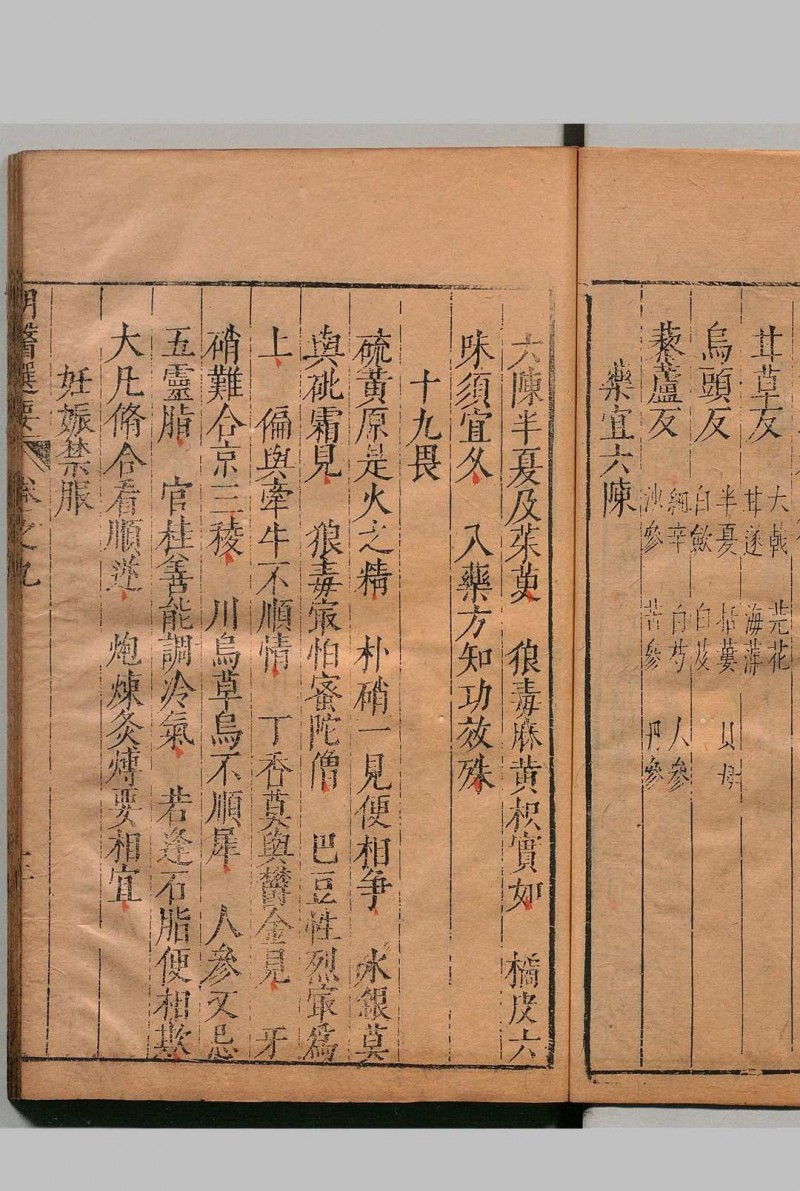 甘草反　大戟　芫花
甘遂　海藻
烏頭反　半夏　栝蔞　貝母
白歛　白芨
藜蘆反　細辛　白芍　人參
沙參　苦參　丹參
藥宜六陳
六陳半夏及茱萸　狼毒麻黃枳實如　橘皮六
味須宜久　入藥方知功效殊
十九畏
硫黃原是火之精　朴硝一見便相爭　水銀莫
與砒霜見　狼毒㝡怕蜜陀僧　巴豆性烈㝡爲
上　偏與牽牛不順情　丁香莫與欝金見　牙
硝難合京三稜　川烏草烏不順犀　人參又忌
五靈脂　官桂善能調冷氣　若逢石脂便相欺
大凡修合看順逆　炮煉灸煿要相宜
妊娠禁服
明醫選要　卷之九